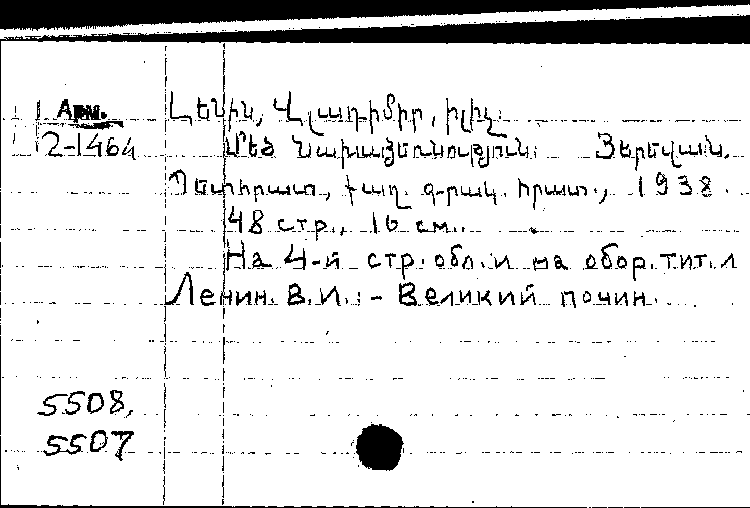 Арм.
2-1464
Լենին, Վլադիմիր, Իլիչ.
Մեծ նախաձեռնություն: Յերևան,
Պետհրատ, քաղ. գրակ. հրատ., 1938.
48 стр., 16 см..
На 4-й стр. обл. и на обор. тит. л
Ленин. В. И. :- Великий почин.
5508,
5507